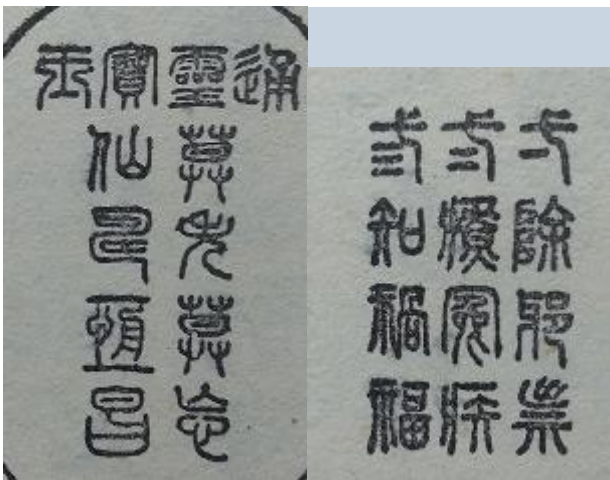 通靈寶玉
莫失莫忘
仙壽恆昌
弌除邪祟
弍療冤疾
弎知禍福